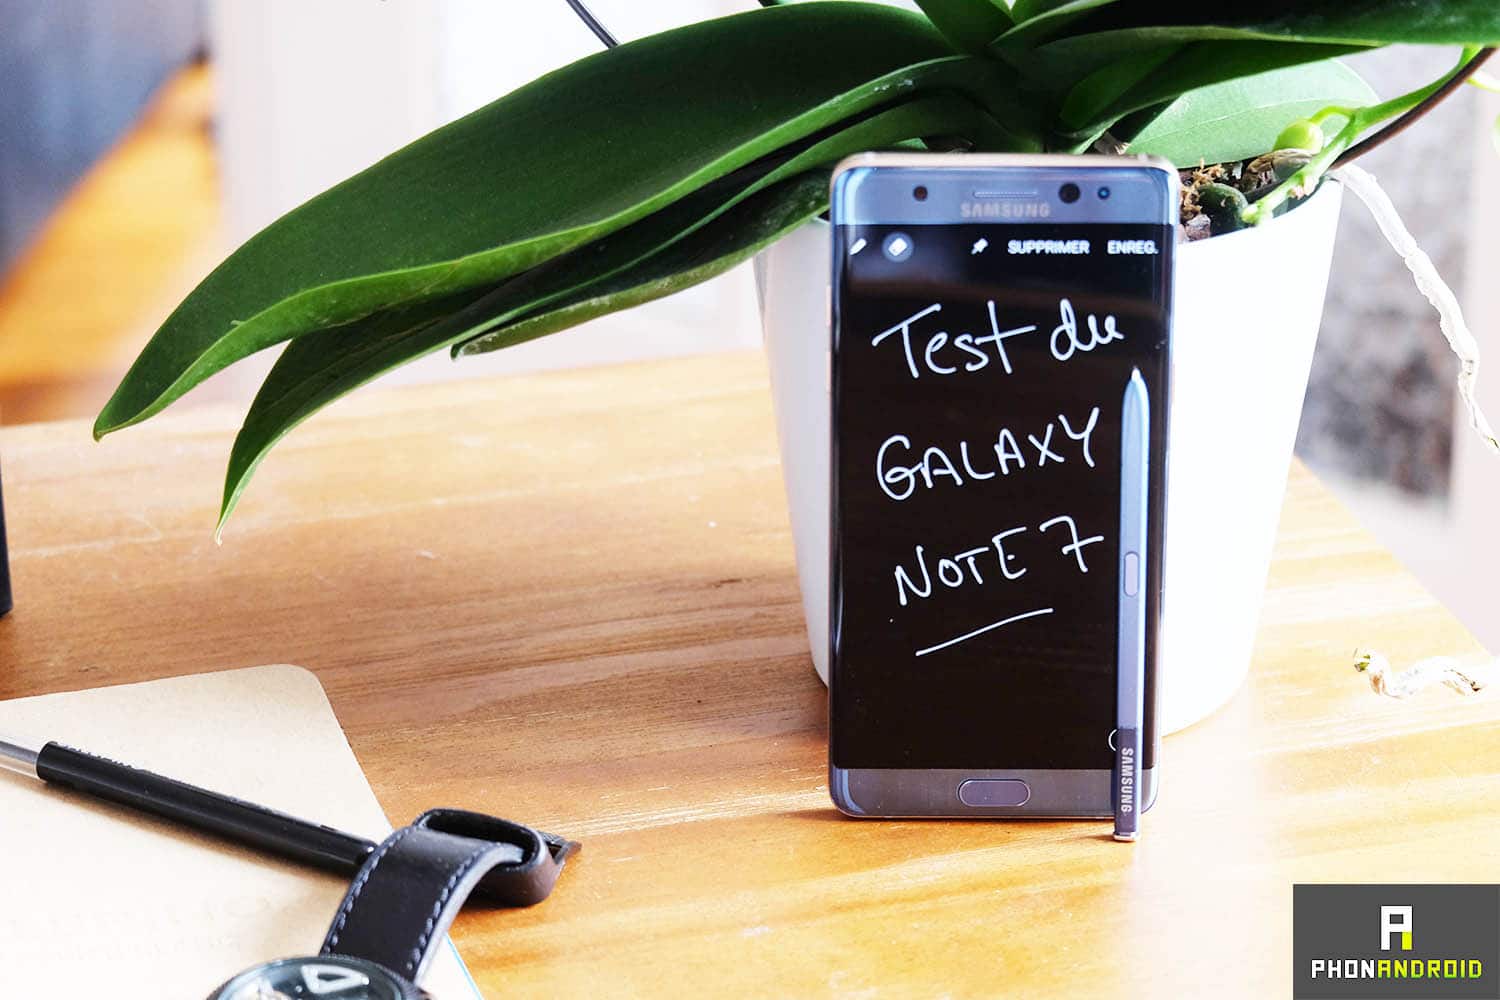 SAMSUNG
SUPPRIMER ENREG.
Test du
GALAXY
NOTE 7
SAMSUNG
PHONANDROID